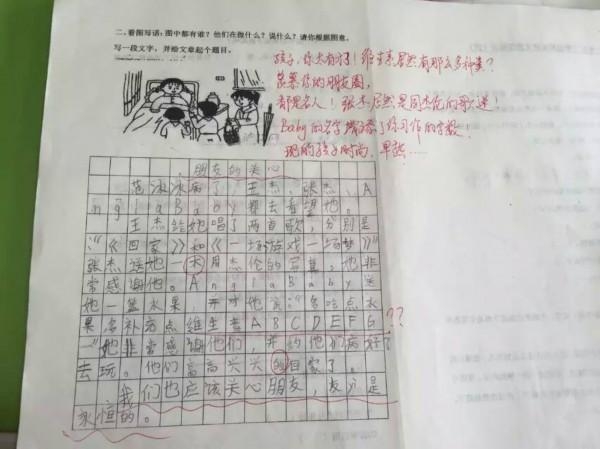 二、看图写话:图中都有谁?他们在做什么?说什么?请你根据图意,
写一段文字,并给文章起个题目。
孩子,你太有才了!维生素居然有那么多种类?
羡慕你的朋友圈,
都是名人!张杰居然是周杰伦的歌迷!
Baby的名字增添了你习作的字数!
现的孩子时尚,早熟……
朋友的关心
范冰冰病了,王杰、张杰、A
ngelaBaby都去看望她。
王杰给她唱了两首歌,分别是
:“《回家》和《一场游戏一场梦》”
张杰送她一本周杰伦的写真,她非
常感谢他。Angelababy送
她一篮水果,并对她说:“多吃点水
果,多补充点维生素ABCDEFG
??
”她非常感谢他们,并约他们病好了
去玩。他们高高兴兴的回家了。
我们也应该关心朋友,友谊是
永恒的。